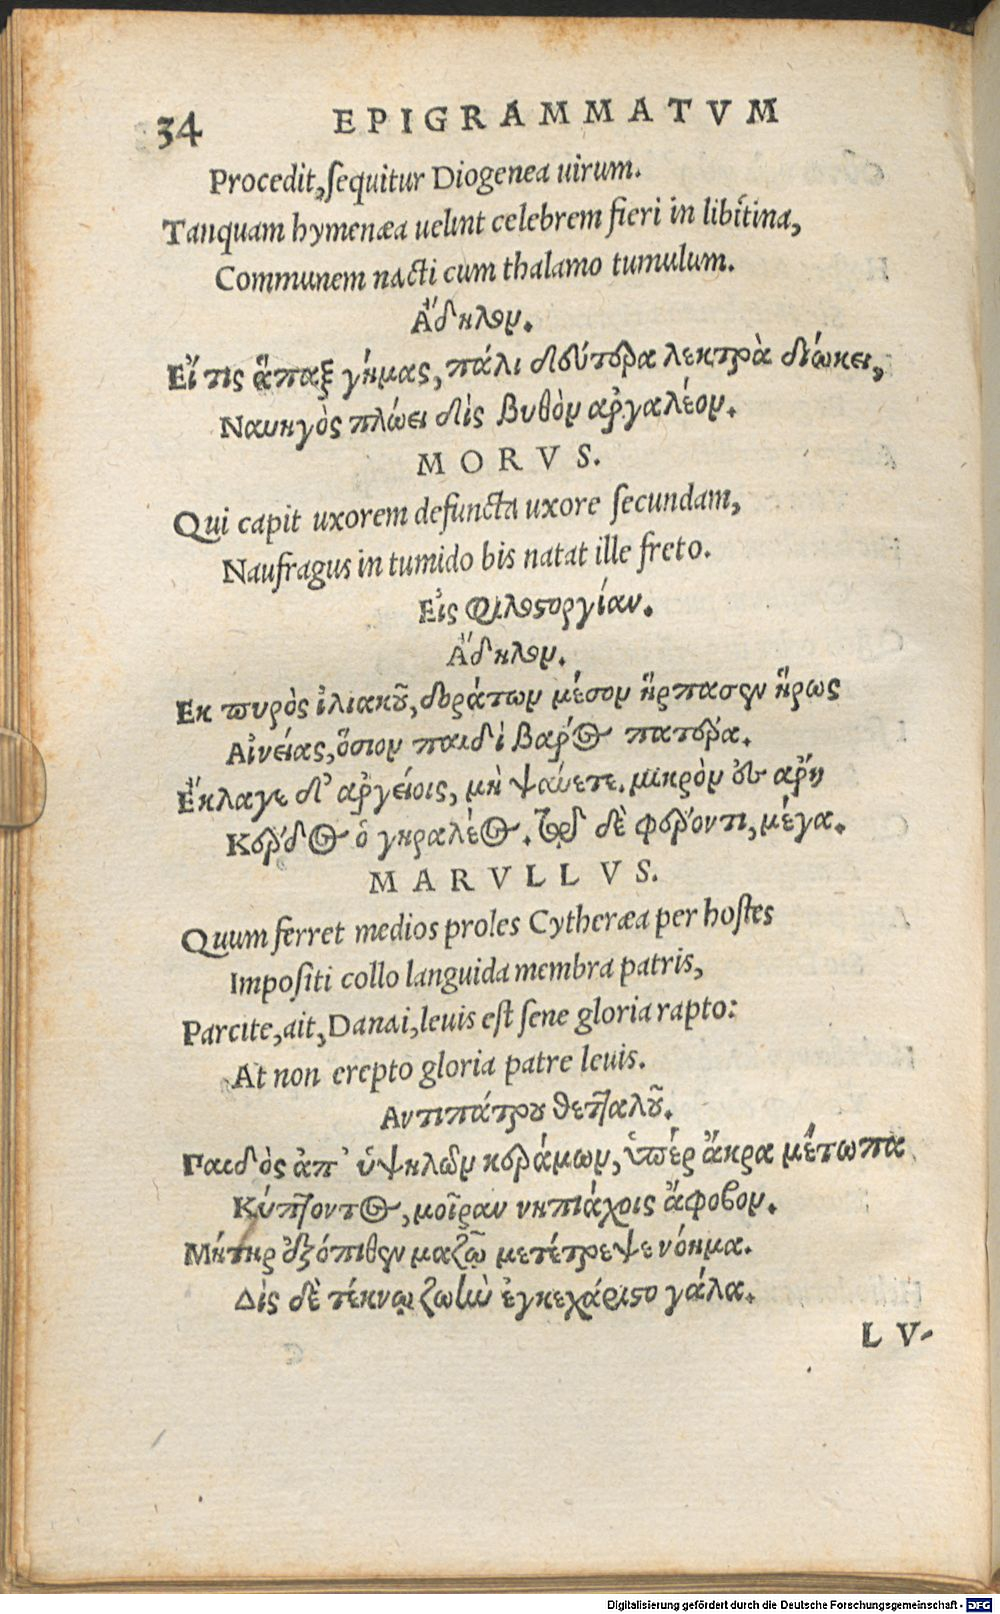 34 EPIGRAMMATVM
Procedit, sequitur Diogenea uirum.
Tanquam hymenæa uelint celebrem fieri in libitina,
Communem nacti cum thalamo tumulum.
Ἄδηλον.
Εἴ τις ἅπαξ γήμας, πάλι δεύτερα λεκτρὰ διώκει,
Ναυηγὸς πλώει δὶς βυθὸν ἀργαλέον.
MORVS.
Qui capit uxorem defuncta uxore secundam,
Naufragus in tumido bis natat ille freto.
Εἰς φιλοστοργίαν.
Ἄδηλον.
Εκ πυρὸς ἰλιακοῦ, δοράτων μέσον ἥρπασεν ἥρως
Αἰνείας, ὅσιον παιδὶ βάρος πατέρα.
Ἔκλαγε δ' ἀργείοις, μὴ ψαύετε. μικρὸν ἐς ἄρη
Κέρδος ὁ γηραλέος. τῷ δὲ φέροντι, μέγα.
MARVLLVS.
Quum ferret medios proles Cytheræa per hostes
Impositi collo languida membra patris,
Parcite, ait, Danai, leuis est sene gloria rapto:
At non erepto gloria patre leuis.
Αντιπάτρου θετταλοῦ.
Παιδὸς ἀπ' ὑψηλῶν κεράμων, ὑπέρ ἄκρα μέτωπα
Κύπτοντος, μοῖραν νηπιάχοις ἄφοβον.
Μήτηρ ἐξόπιθεν μαζῷ μετέτρεψε νόημα.
Δὶς δὲ τέκνῳ ζωὴν ἐγκεχάριστο γάλα.
LV-
Digitalisierung gefördert durch die Deutsche Forschungsgemeinschaft - DFG